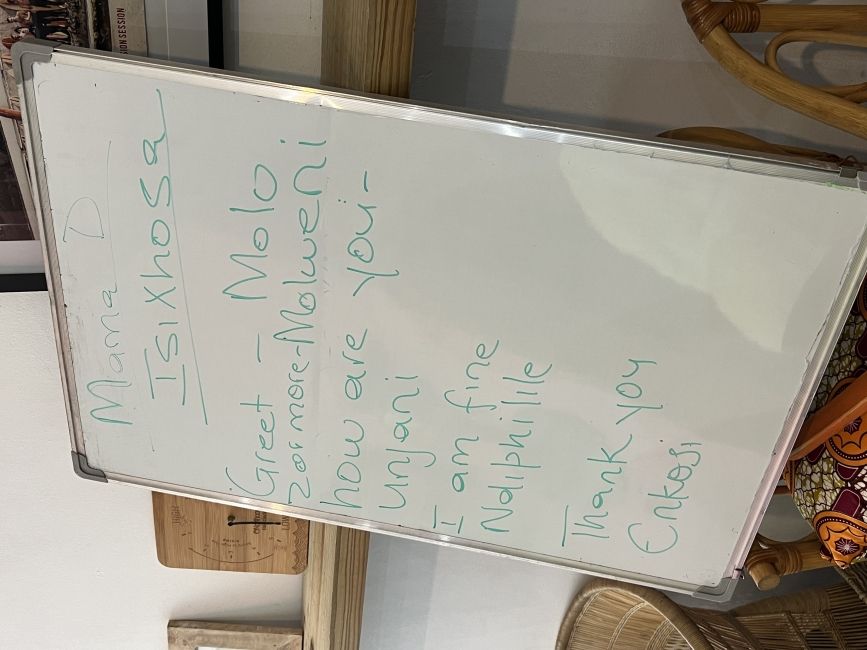 Mama D
IsiXhosa
Greet - Molo
2 or more - Molweni
how are you -
unjani
I am fine
Ndiphilile
Thank you
Enkosi
ION SESSION